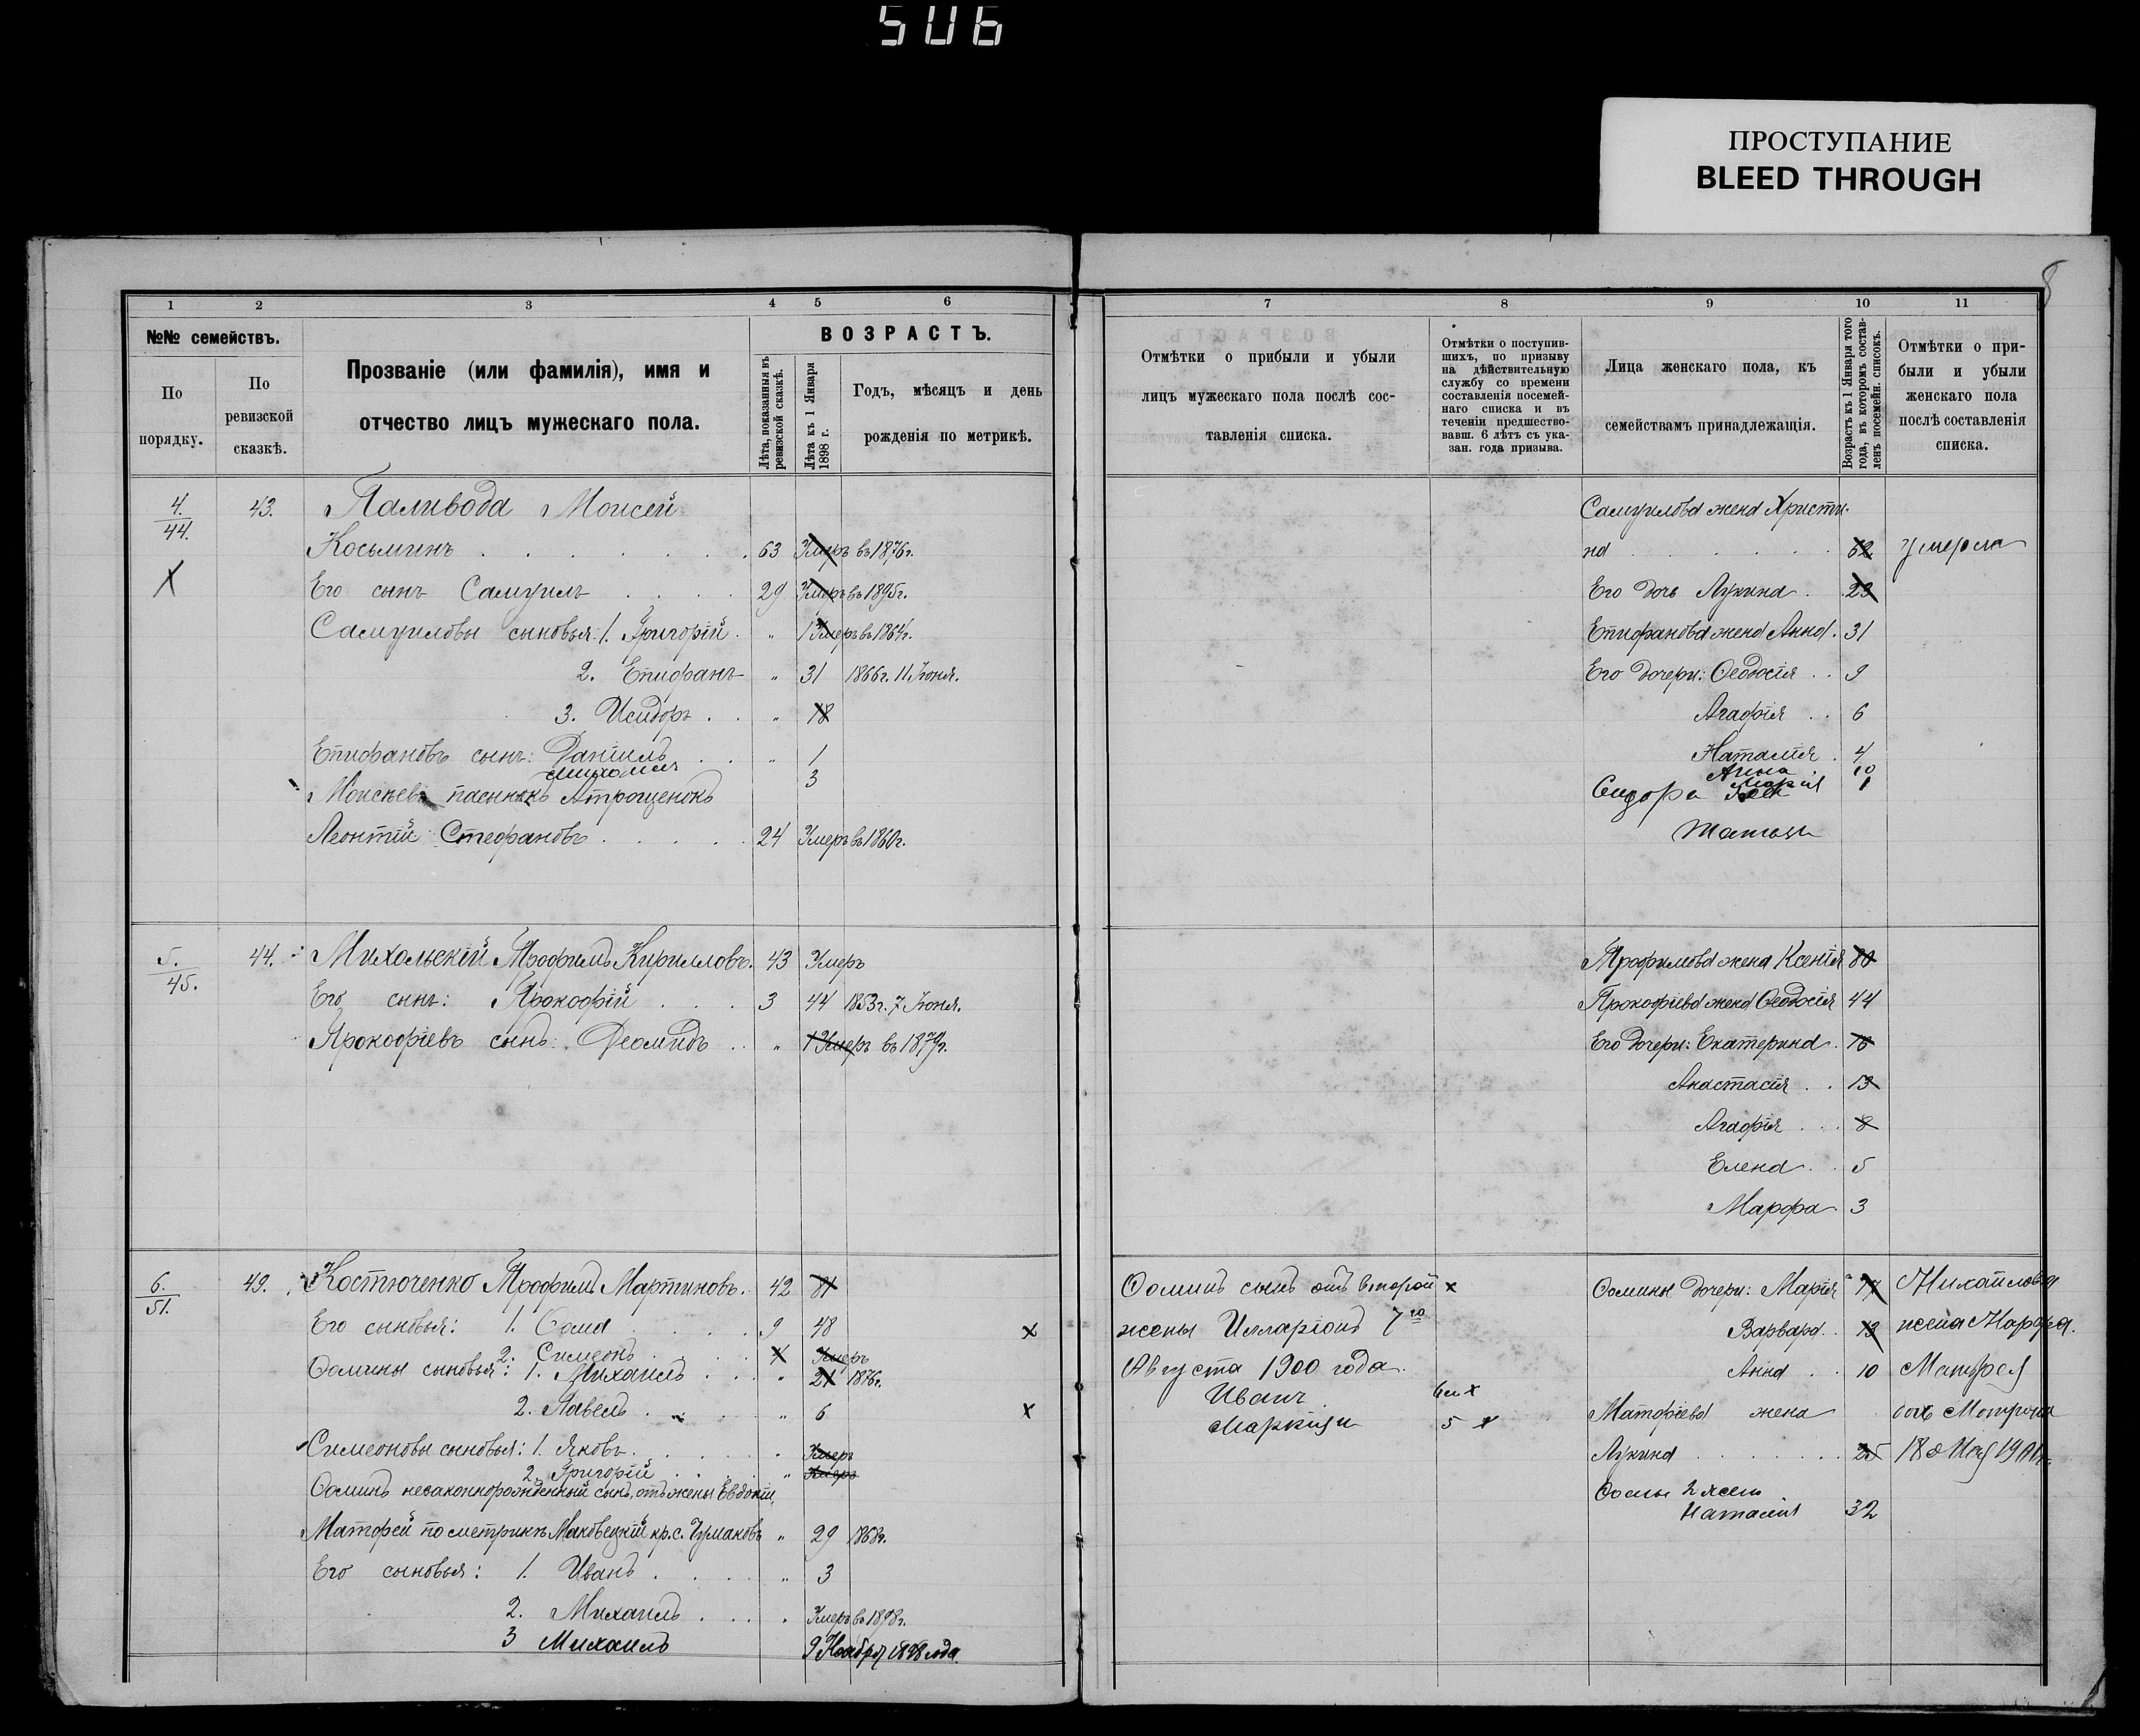 506
ПРОСТУПАНИЕ
BLEED THROUGH
8
1 2 3 4 5 6
№№ семействъ.
По порядку.
По ревизской сказкѣ.
Прозваніе (или фамилія), имя и
отчество лицъ мужескаго пола.
ВОЗРАСТЪ.
Лѣта, показанныя въ ревизской сказкѣ.
Лѣта къ 1 Января 1898 г.
Годъ, мѣсяцъ и день
рожденія по метрикѣ.
4. 43. Паливода Моисей
44.
Косьминъ 63 Умеръ въ 1876г.
X Его сынъ Самуилъ 29 Умеръ въ 1895г.
Самуиловы сыновья: 1. Григорій " 1 Умеръ въ 1864г.
2. Епифанъ " 31 1866г. 11 Іюня.
3. Исидоръ " 18
Епифановъ сынъ: Даніилъ " 1
3
Моисеевъ пасынокъ Атрощенокъ
Леонтій Стефановъ 24 Умеръ въ 1860г.
5. 44. Михольскій Трофимъ Кирилловъ. 43 Умеръ
45.
Его сынъ: Прокофій 3 44 1853г. 7 Іюня.
Прокофіевъ сынъ: Деомидъ " 1 Умеръ въ 1879г.
6. 49. Костюченко Трофимъ Мартиновъ. 42 81
51.
Его сыновья: 1. Фома 9 48 x
2. Симеонъ Умеръ
Фомины сыновья: 1. Михаилъ " 21 1876г.
2. Павелъ " 6 x
Симеоновы сыновья: 1. Яковъ " Умеръ
2. Григорій " Умеръ
Фоминъ незаконнорожденный сынъ, отъ жены Евдокіи,
Матфей по метрикѣ Маковецкій кр. с. Чумаковъ " 29 1868г.
Его сыновья: 1. Иванъ " 3
2. Михаилъ " Умеръ въ 1898г.
3 Михаилъ 9 Ноября 1898 года.
7 8 9 10 11
Отмѣтки о прибыли и убыли
лицъ мужескаго пола послѣ сос-
тавленія списка.
Отмѣтки о поступив-
шихъ, по призыву
на дѣйствительную
службу со времени
составленія посемей-
наго списка и въ
теченіи предшество-
вавш. 6 лѣтъ съ ука-
зан. года призыва.
Лица женскаго пола, къ
семействамъ принадлежащія.
Возрастъ къ 1 Января того
года, въ которомъ состав-
ленъ посемейн. списокъ.
Отмѣтки о при-
были и убыли
женскаго пола
послѣ составленія
списка.
Самуилова жена Христи-
на 62 умерла
Его дочь Лукина 23
Епифанова жена Анна 31
Его дочери: Феодосія 9
Агафія 6
Наталія 4
Анна 10
Сидора Марія 1
Трофимова жена Ксенія 80
Прокофіева жена Феодосія 44
Его дочери: Екатерина 16
Анастасія 13
Агафія 8
Елена 5
Марфа 3
Фоминъ сынъ отъ второй x Фомины дочери: Марія 17 Михайлова
жены Илларіонъ 7го Варвара 13 жена Марфа.
Августа 1900 года. Анна 10 Матфея
Иванъ
Матфіева жена дочь Мотрона
5 x
Лукина 25
Фомы 2 жена
Наталія 32